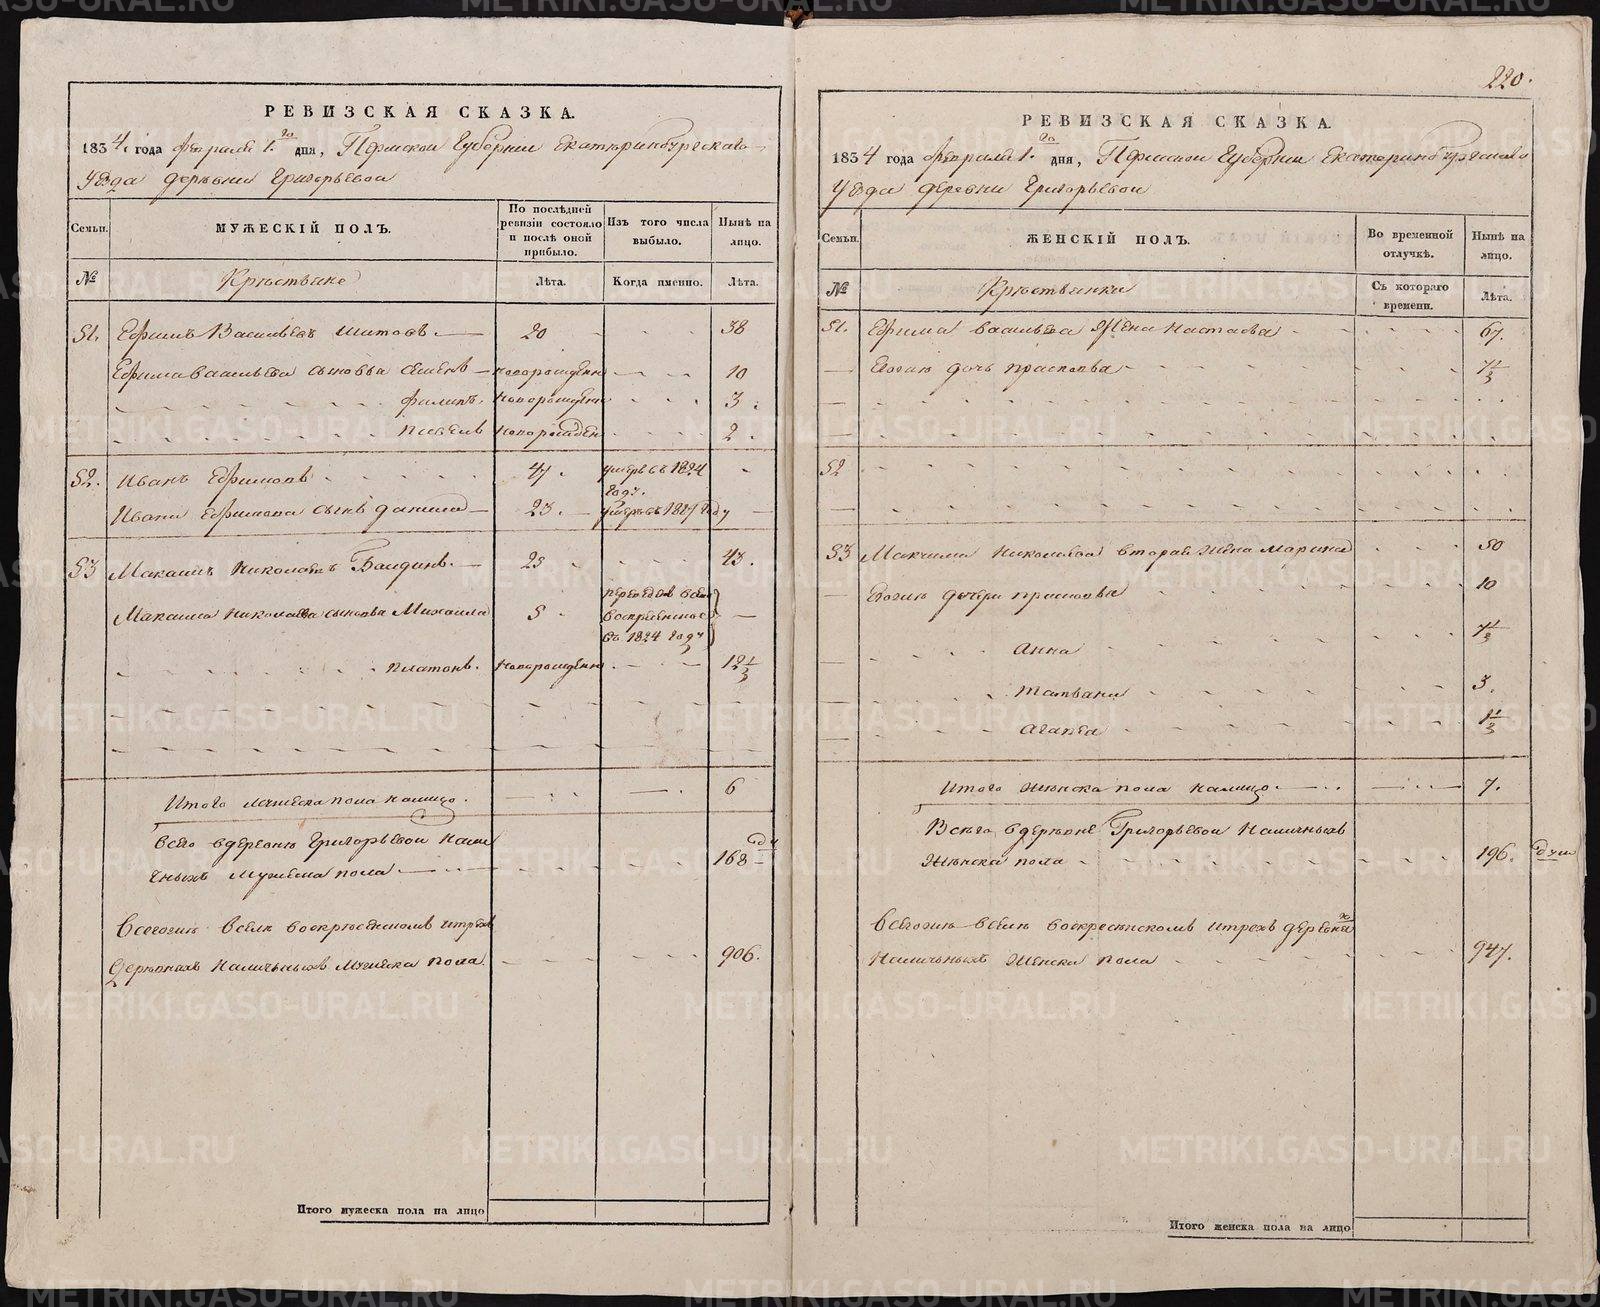 РЕВИЗСКАЯ СКАЗКА.
1834 года февраля 1го дня, Пермской Губернии Екатеринбургскаго
Уезда деревни Григорьевой
Семьи.
МУЖЕСКІЙ ПОЛЪ.
По послѣдней ревизіи состояло и послѣ оной прибыло.
Изъ того числа выбыло.
Нынѣ на лицо.
№
Крестьяне
Лѣта.
Когда именно.
Лѣта.
51. Ефимъ Васильевъ Шитовъ 20 38
Ефима Васильева сыновья Семенъ новорожденъ 10
Филипъ новорожденъ 3
новорожден 2
52. Иванъ Ефимовъ 47 умеръ въ 1824 году.
Ивана Ефимова сынъ Данила 23. умеръ въ 1827 году
53 Максимъ Николаевъ 25 43.
Максима Николаева сыновья Михаила 5 въ 1824 году
Платонъ. новорожденъ 12 1/3
Итого мужеска пола налицо. 6
Всего в деревне Григорьевой нали
чныхъ мужеска пола 168 душ
Всегоже вселе воскресенскомъ итрехъ
деревняхъ наличныхъ мужеска пола. 906.
Итого мужеска пола на лицо
220.
РЕВИЗСКАЯ СКАЗКА.
1834 года февраля 1.го дня, Пермской Губернии Екатеринбургскаго
Уезда деревни Григорьевой
Семьи.
ЖЕНСКІЙ ПОЛЪ.
Во временной отлучкѣ.
Нынѣ на лицо.
№
Крестьянки
Съ котораго времени.
Лѣта.
51. Ефима Васильева жена Настасья 67.
Егоже дочь Прасковья
52
53 Максима Николаева вторая жена Марина 50
Егоже дочери Прасковья 10
Анна
Татьяна 3.
Агапея
Итого женска пола налицо. 7.
Всего вдеревне Григорьевой наличныхъ
женска пола 196. душ
Всегоже вселе воскресенскомъ итрехъ деревнях
наличныхъ женска пола 947.
Итого женска пола на лицо
METRIKI.GASO-URAL.RU